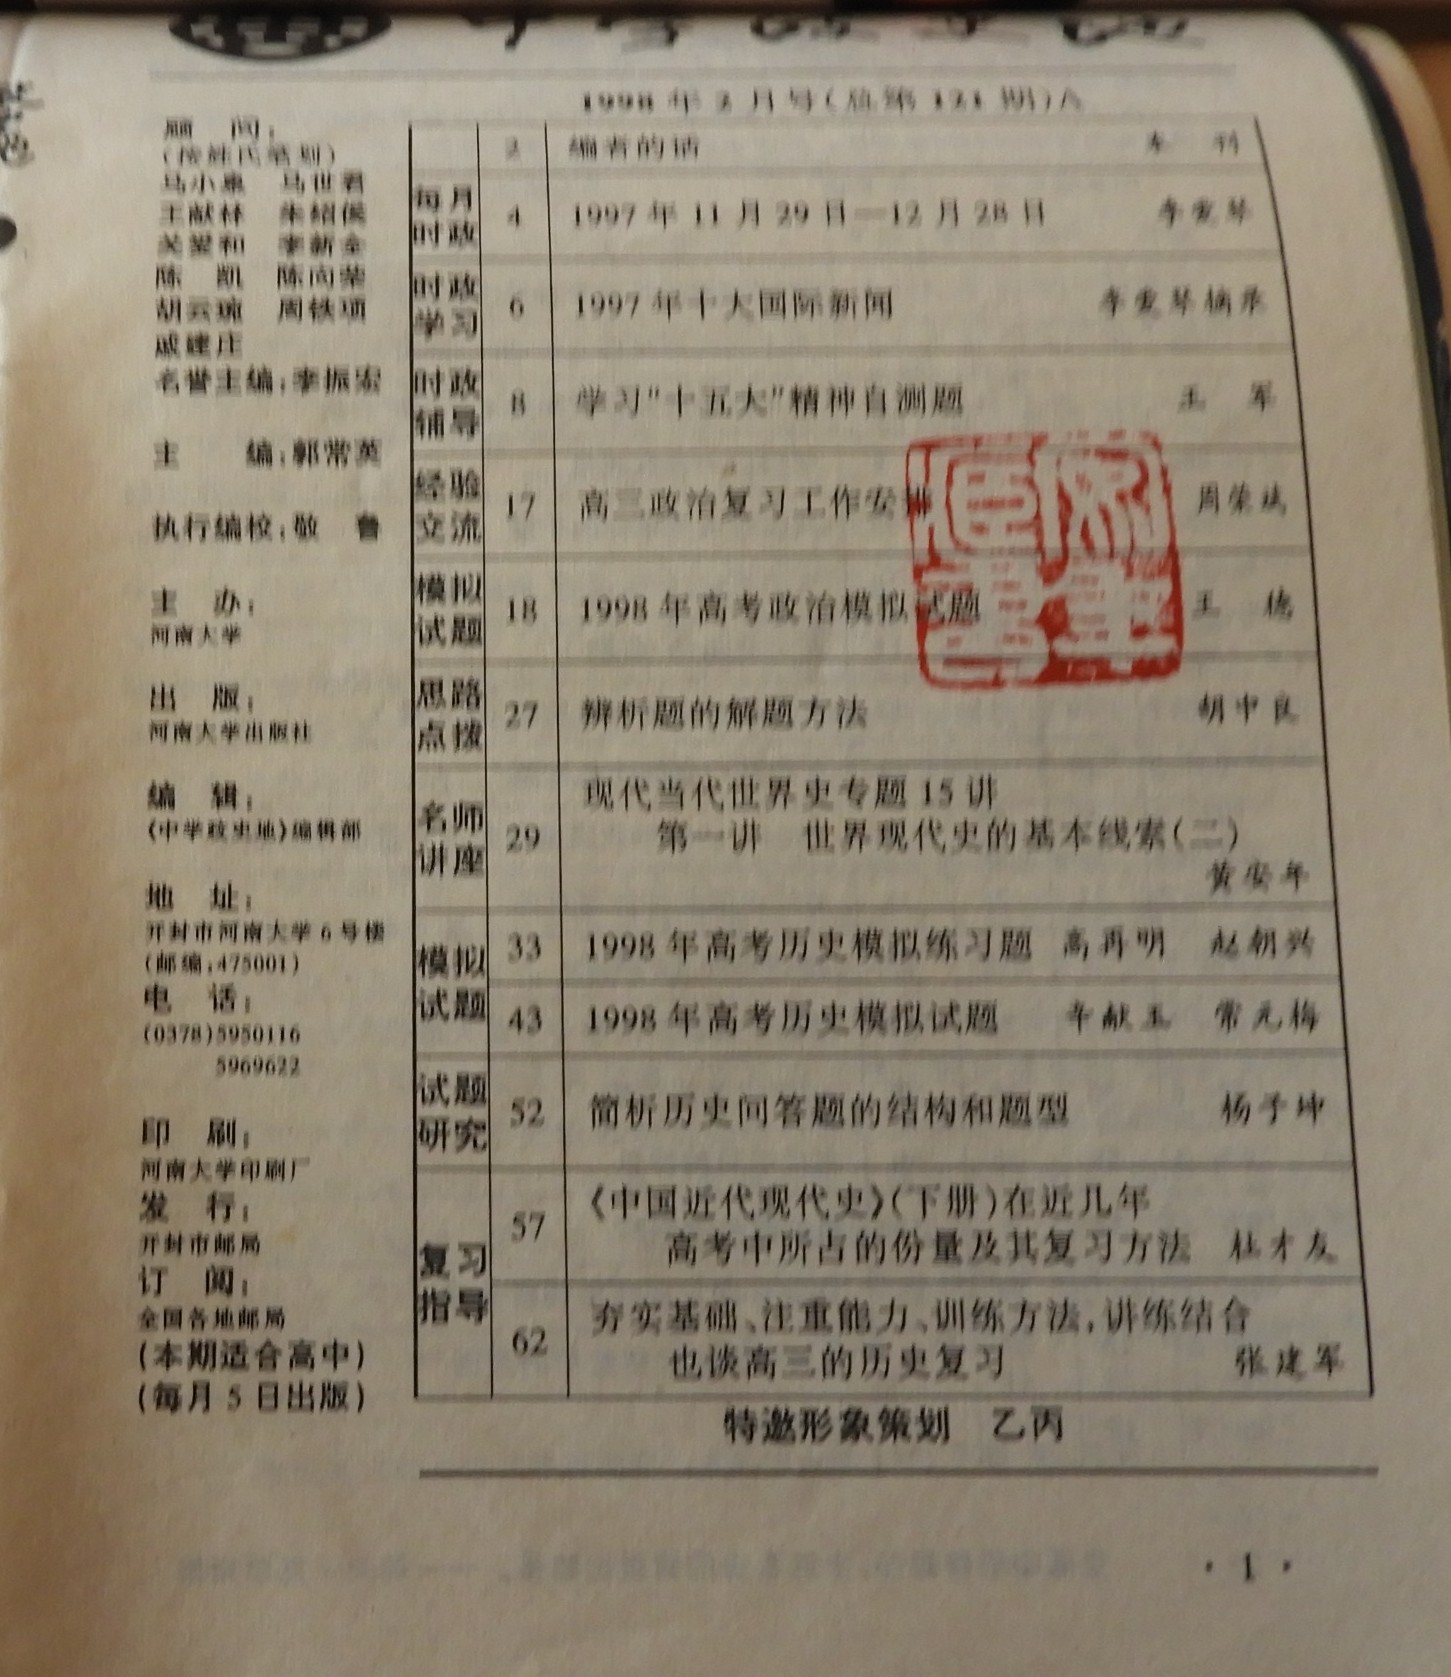 1998年2月号(总第121期)A
顾 问:
(按姓氏笔划)
马小泉 马世君
王献林 朱绍侯
关爱和 李新全
陈 凯 陈向荣
胡云琬 周铁项
戚建庄
名誉主编:李振宏
主 编:郭常英
执行编校:敬 鲁
主 办:
河南大学
出 版:
河南大学出版社
编 辑:
《中学政史地》编辑部
地 址:
开封市河南大学6号楼
(邮编:475001)
电 话:
(0378)5950116
5969622
印 刷:
河南大学印刷厂
发 行:
开封市邮局
订 阅:
全国各地邮局
(本期适合高中)
(每月5日出版)
2 编者的话 本 刊
每月时政 4 1997年11月29日—12月28日 李爱琴
时政学习 6 1997年十大国际新闻 李爱琴摘录
时政辅导 8 学习"十五大"精神自测题 王 军
经验交流 17 高三政治复习工作安排 周荣斌
模拟试题 18 1998年高考政治模拟试题 王 德
思路点拨 27 辨析题的解题方法 胡中良
名师讲座 29 现代当代世界史专题15讲
第一讲 世界现代史的基本线索(二)
黄安年
模拟试题 33 1998年高考历史模拟练习题 高再明 赵朝兴
43 1998年高考历史模拟试题 辛献玉 常元梅
试题研究 52 简析历史问答题的结构和题型 杨子坤
复习指导 57 《中国近代现代史》(下册)在近几年
高考中所占的份量及其复习方法 杜才友
62 夯实基础、注重能力、训练方法,讲练结合
也谈高三的历史复习 张建军
特邀形象策划 乙丙
·1·